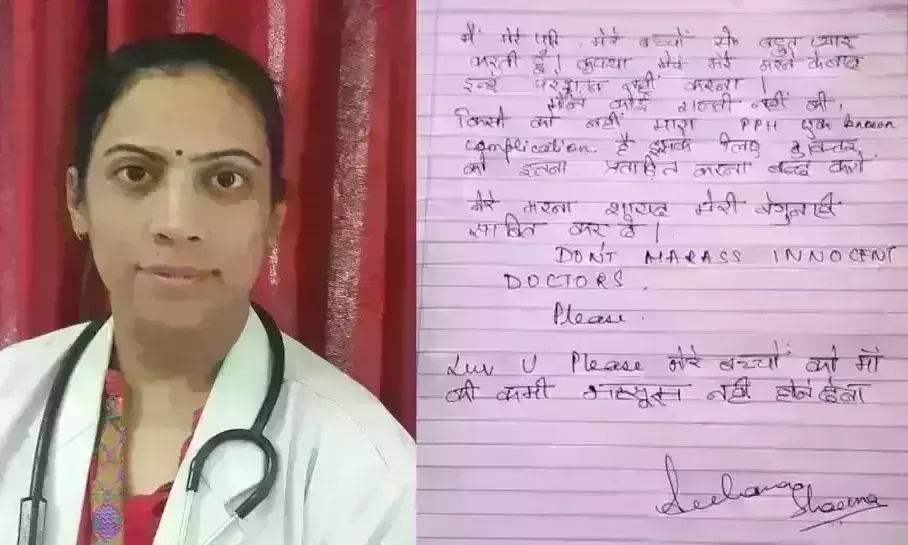 मैं मेरे पति, मेरे बच्चों से बहुत प्यार
करती हूँ। कृपया मेरे मेरे मरने के बाद
इन्हें परेशान नहीं करना।
मैंने कोई गलती नहीं की,
किसी को नहीं मारा PPH एक known
complication है इसके लिए डॉक्टर
को इतना प्रताड़ित करना बन्द करो
मेरा मरना शायद मेरी बेगुनाही
साबित कर दे।
DON'T HARASS INNOCENT
DOCTORS.
Please.
Luv U Please मेरे बच्चों को माँ
की कमी महसूस नहीं होने देना
Sharma